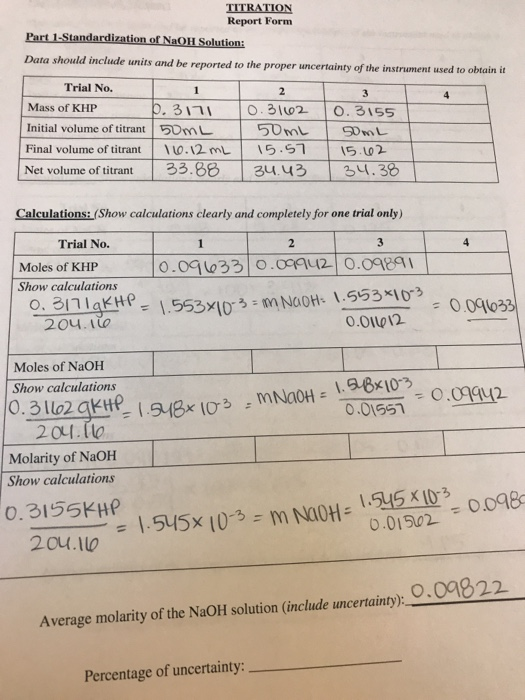 TITRATION
Report Form
Part 1-Standardization of NaOH Solution:
Data should include units and be reported to the proper uncertainty of the instrument used to obtain it
Trial No. 1 2 3 4
Mass of KHP 0.3171 0.3162 0.3155
Initial volume of titrant 50mL 50mL 50mL
Final volume of titrant 16.12 mL 15.57 15.62
Net volume of titrant 33.88 34.43 34.38
Calculations: (Show calculations clearly and completely for one trial only)
Trial No. 1 2 3 4
Moles of KHP 0.09633 0.09942 0.09891
Show calculations
0.3171gKHP / 204.16 = 1.553×10-3 = mNaOH= 1.553×10-3 / 0.01612 = 0.09633
Moles of NaOH
Show calculations
0.3162gKHP / 204.16 = 1.548×10-3 = mNaOH = 1.548×10-3 / 0.01557 = 0.09942
Molarity of NaOH
Show calculations
0.3155KHP / 204.16 = 1.545×10-3 = mNaOH= 1.545×10-3 / 0.01562 = 0.098
Average molarity of the NaOH solution (include uncertainty): 0.09822
Percentage of uncertainty: